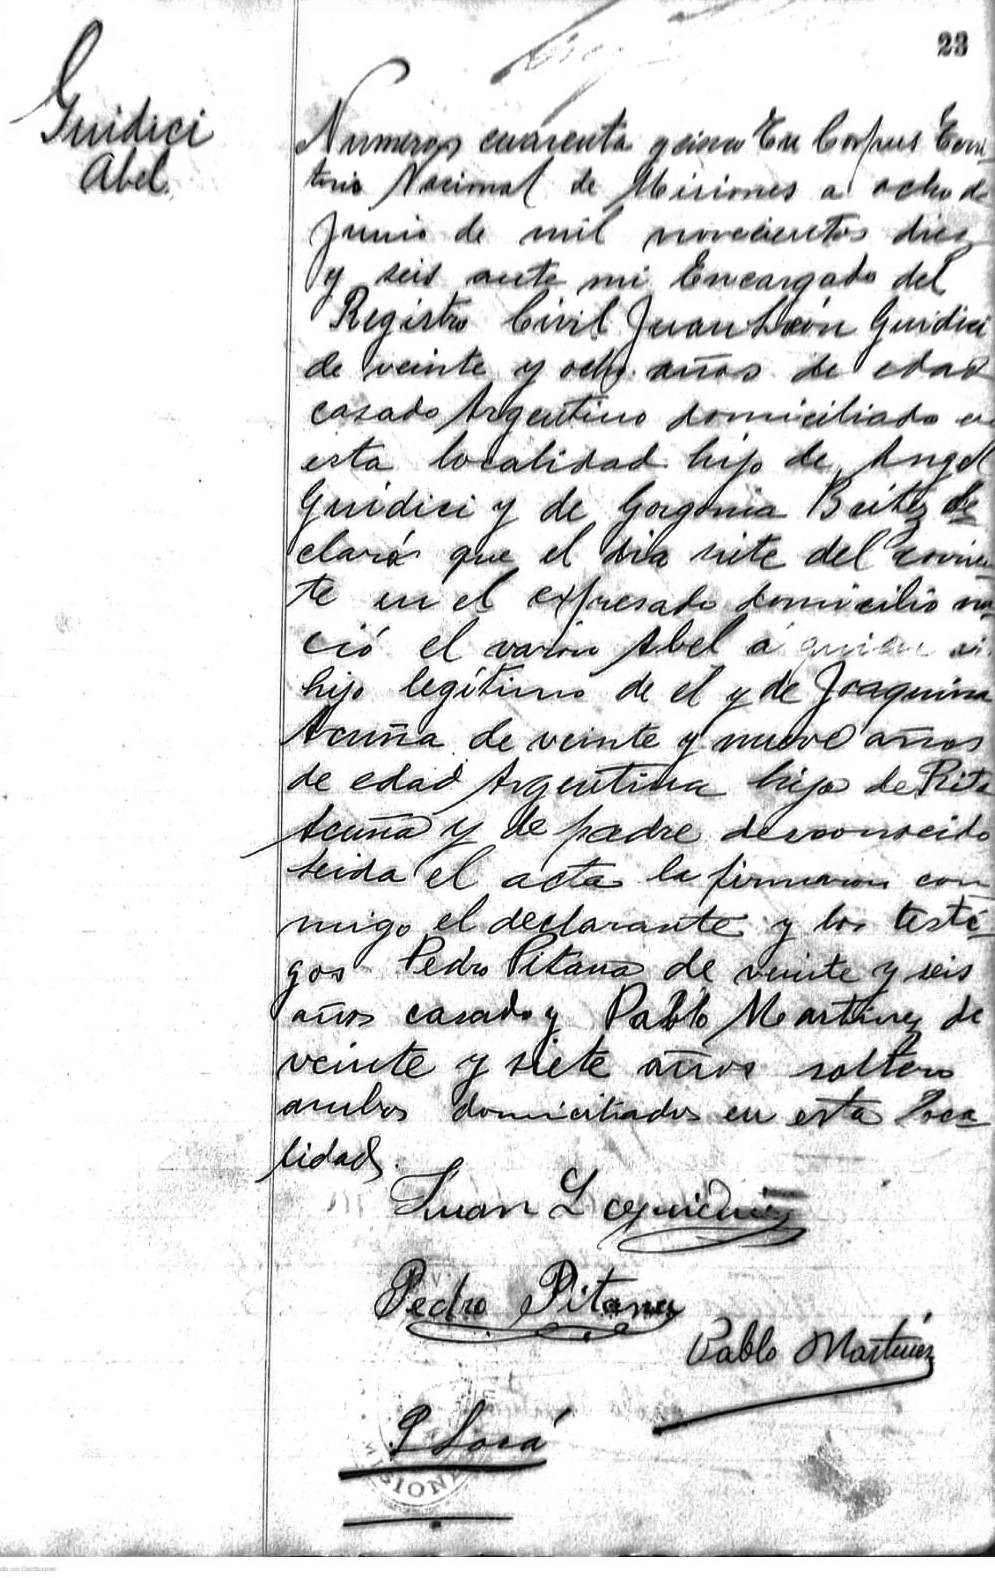 23
Guidici
Abel.
Numero cuarenta y cinco En Corpus Terri
torio Nacional de Misiones a ocho de
Junio de mil novecientos diez
y seis ante mi Encargado del
Registro Civil Juan León Guidici
de veinte y ocho años de edad
casado Argentino domiciliado en
esta localidad hijo de Angel
Guidici y de Gorgonia Beitez de
claró que el dia siete del corrien
te en el expresado domicilio na
ció el varón Abel a quien
hijo legítimo de el y de Joaquina
Acuña de veinte y nueve años
de edad Argentina hija de Rita
Acuña y de padre desconocido
Leida el acta la firmaron con
migo el declarante y los testi
gos Pedro Pitana de veinte y seis
años casado y Pablo Martinez de
veinte y siete años soltero
ambos domiciliados en esta loca
lidad.
Juan L Guidici
Pedro Pitana
Pablo Martinez
P Losá